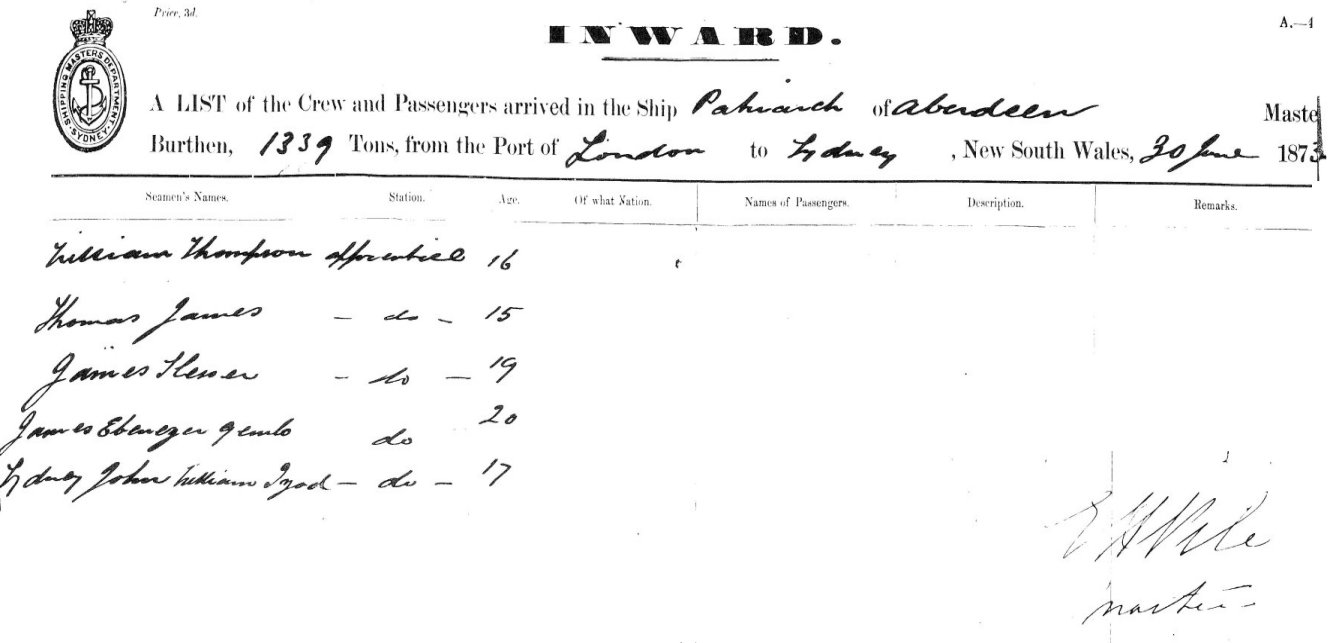 Price, 3d.
A.—4
INWARD.
SHIPPING MASTERS DEPARTMENT SYDNEY
A LIST of the Crew and Passengers arrived in the Ship Patriarch of Aberdeen Maste
Burthen, 1339 Tons, from the Port of London to Sydney , New South Wales, 30 June 187
Seamen's Names. Station. Age. Of what Nation. Names of Passengers. Description. Remarks.
William Thompson apprentice 16
Thomas James – do – 15
James – do – 19
James Ebenezer do 20
Sydney John William Izod – do – 17
E H
master